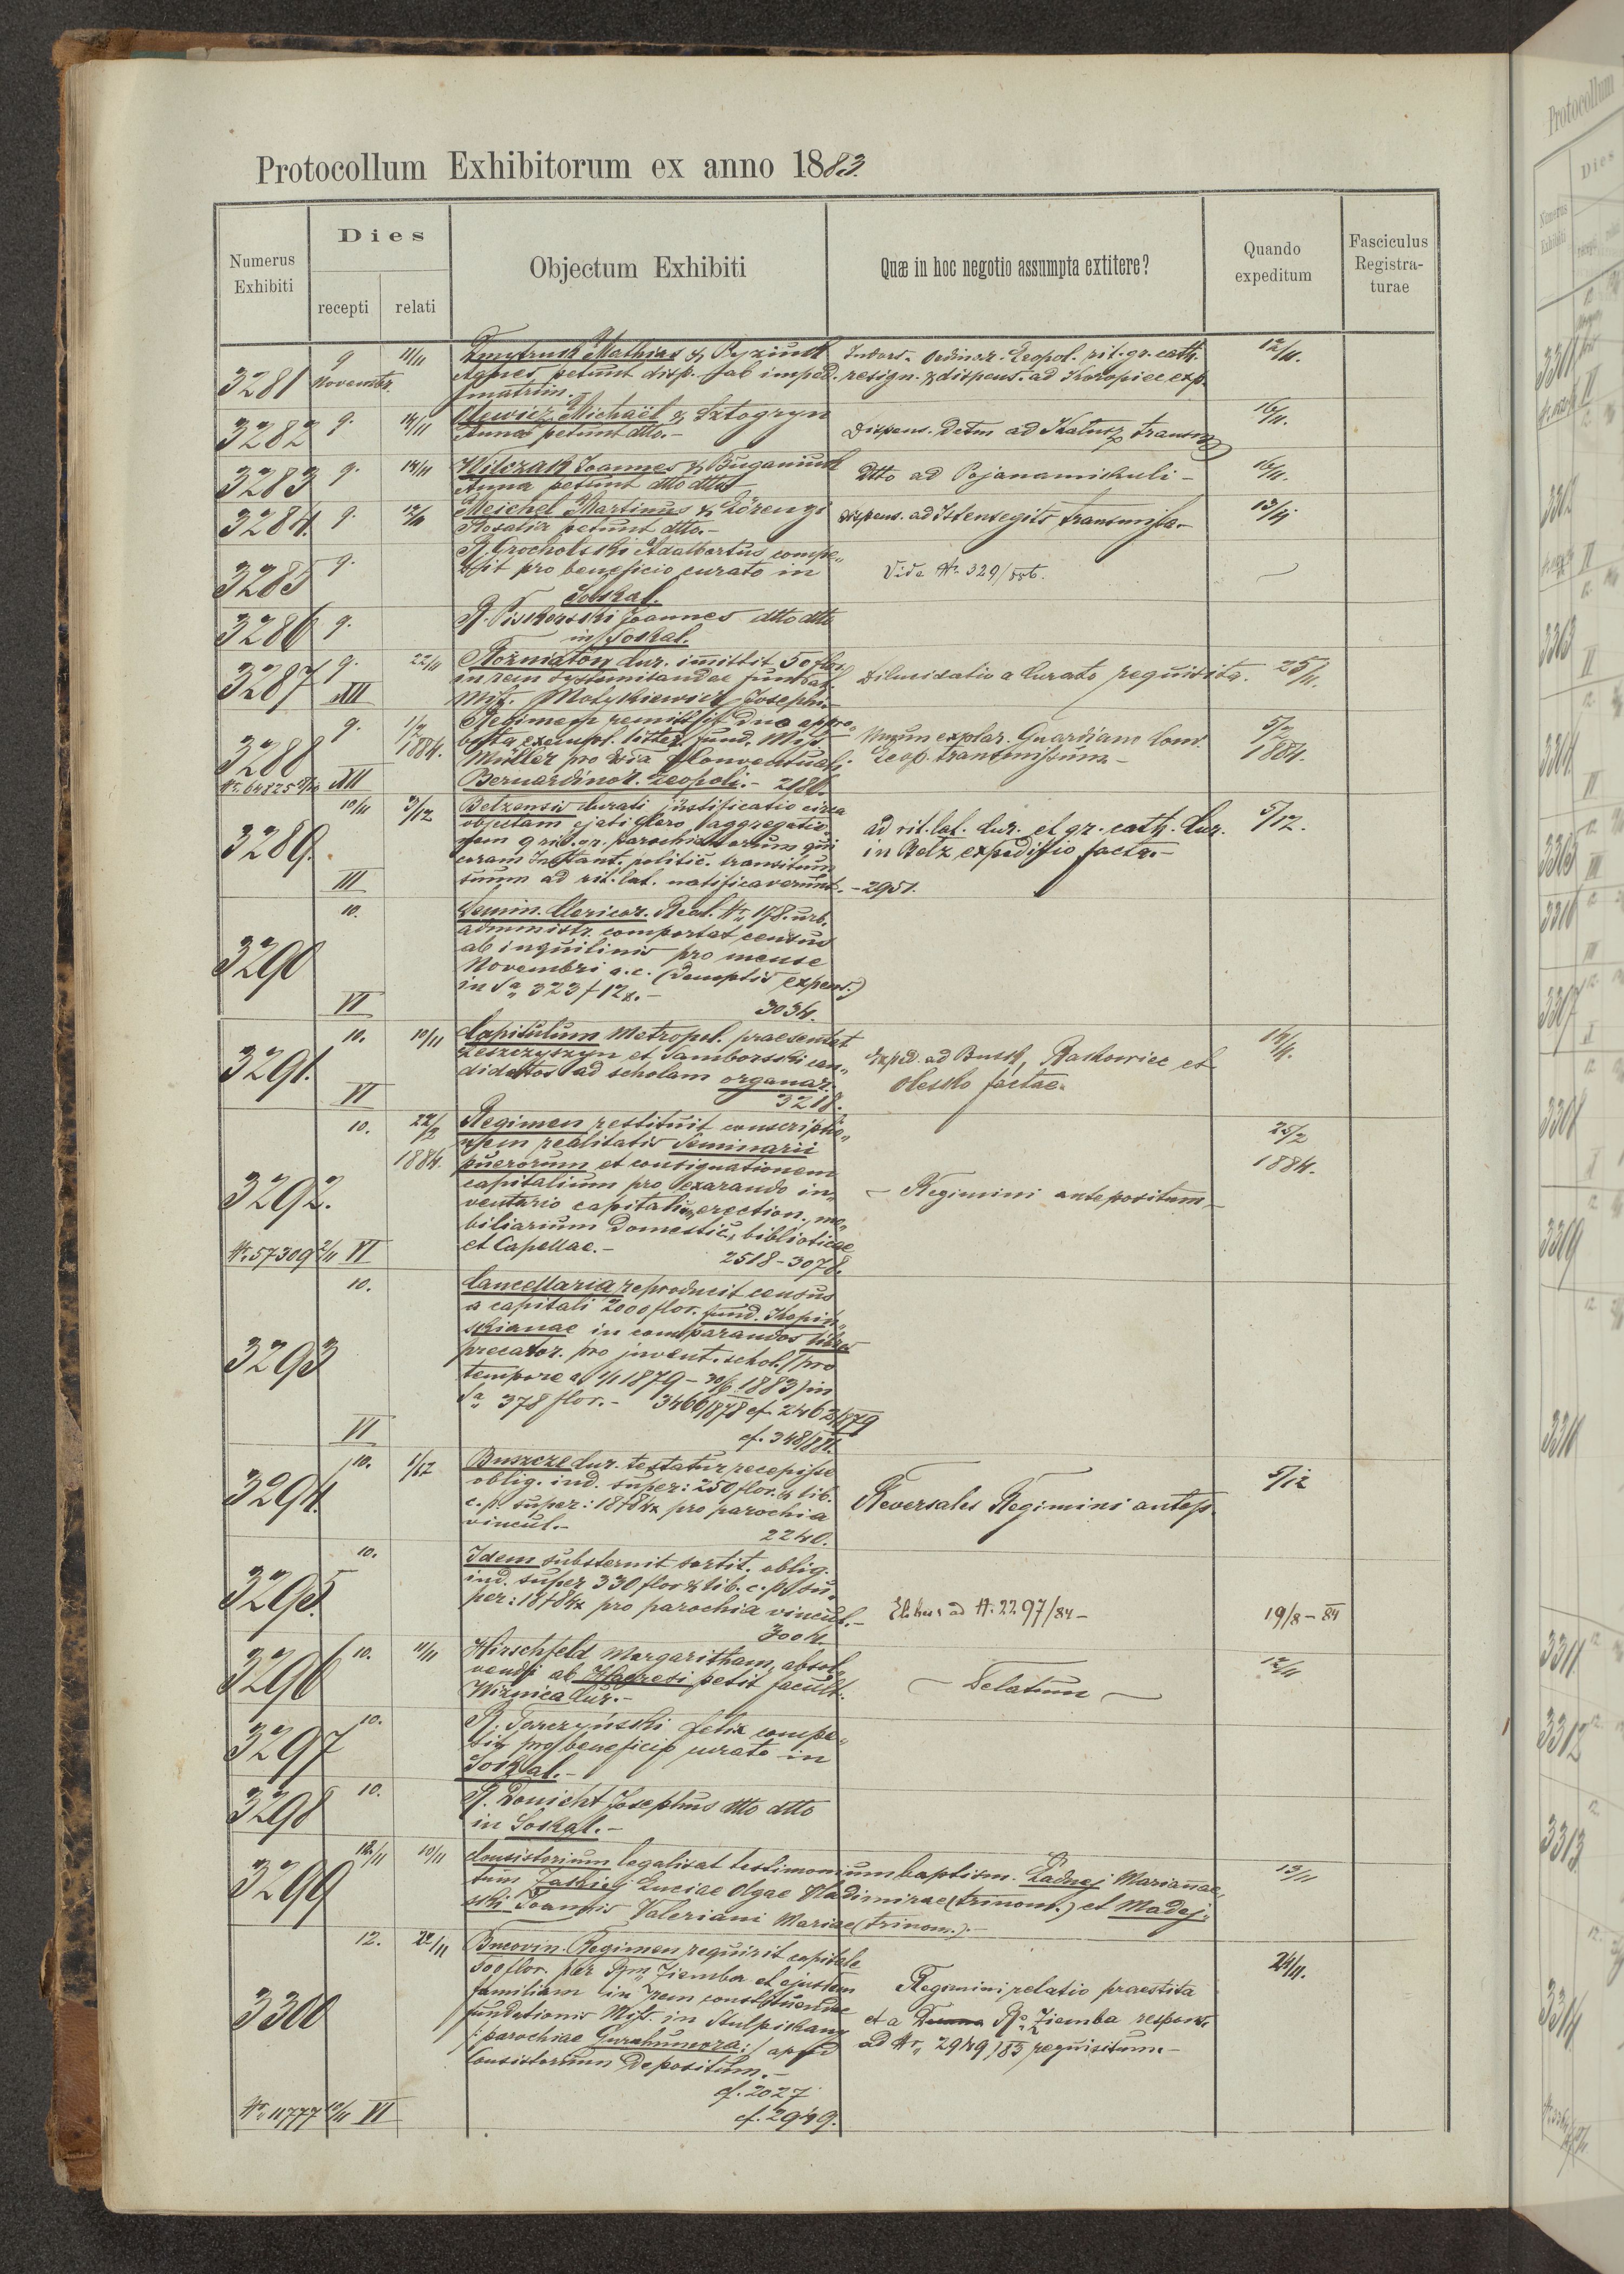 Protocollum Exhibitorum ex anno 1883.
Numerus Exhibiti
Dies
recepti
relati
Objectum Exhibiti
Quæ in hoc negotio assumpta extitere?
Quando expeditum
Fasciculus Registra-turae
3281
9 Novembr.
11/11
Mathias &
Agnes petunt disp. ab imped.
matrim.
Ordinar. Leopol. rit. gr. cath.
resign. & dispens. ad Koropiec exp.
12/11.
3282
9.
14/11
Michaël & Sztogryn
Anna petunt dtto.-
Dispens. detm ad Kałusz transm.
16/11.
3283
9.
14/11
Wilczak Joannes & Buganiuk
Anna petunt dtto dtto
Dtto ad Pojanamikuli -
16/11.
3284.
9.
12/11
Meichel Martinus & Lörenz
Rosalia petunt dtto.-
Dispens. ad Istensegits transmissa.-
13/11
3285
9.
R. Grocholski Adalbertus compe„
tit pro beneficio curato in
Sokal.
Vide Nr. 329/886.
3286
9.
R. Piskorski Joannes dtto dtto
in Sokal.
3287
9.
XII
22/11
Rożniatow Cur. imittit 50 flor
in rem systemisandae fundat.
Miss. Matykiewicz Josephi.-
Dilucidatio a Curato requisita.
25/11.
3288
Nr. 64825
9.
XII
1/2 1884.
Regimen remittit duo appro„
bata exempl. litter. fund. Miss.
Müller pro Ecclia Conventuali
Bernardinor. Leopoli.- 2186.
Unum explar. Guardiano Conv.
Leop. transmissum.-
5/2 1884.
3289.
10/11
III
3/12
Belzensis Curati justificatio circa
objectam ejati Clero aggregatio„
nem 9 rit. gr. parochianorum qui
coram Instant. politic. transitum
suum ad rit. lat. notificaverunt.- 2951.
ad rit. lat. Cur. et gr. cath. Cur.
in Belz expeditio facta.-
5/12.
3290
10.
VI
Semin. Clericor. Real. Nr. 178. urb.
administr. comportat census
ab inquilinis pro mense
Novembri a.c. (demptis expens.)
in Sa 323 f 12x.-
3034.
3291.
10.
VI
10/11
Capitulum Metropol. praesentat
Leszczyszyn et Samborski can„
didatos ad scholam organar.
3218.
Exped. ad Busk, Raskowiec et
Olesko factae.
14/11.
3292.
Nr. 57309 2/11
10.
VI
22/2 1884.
Regimen restituit conscriptio„
nem realitatis Seminarii
puerorum et consignationem
capitalium pro exarando in„
ventario capitalium, erection., mo„
biliarium domestic., bibliotecae
et Capellae.-
2518 - 3078.
- Regimini antepositum -
25/2 1884.
3293
10.
VI
Cancellaria reproducit census
a capitali 2000 flor. fund. Skopiń„
skianae in comparandos libros
precator. pro juvent. schol. (pro
tempore a 1/1 1879 - 30/6 1883) in
Sa 378 flor.- 3466/1878 cf. 2462/1879
cf. 348/881.
3294.
10.
1/12
Buszcze Cur. testatur recepisse
oblig. ind. super: 250 flor. & lib.
c.p. super: 18f 84x pro parochia
vincul.-
2240.
Reversales Regimini antep.
5/12
3295.
10.
Idem substernit sortit. oblig.
ind. super 330 flor & lib. c.p. su„
per: 18f 84x pro parochia vincul.-
3004.
ad N. 2297/84 -
19/8 - 84
3296
10.
11/11
Hirschfeld Margaritham, absol„
vendi ab Haeresi petit facult.
Wiżnica Cur.-
- Delatum -
12/11
3297
10.
R. Tarczyński Felix compe„
tit pro beneficio curato in
Sokal.-
3298
10.
R. Josephus dtto dtto
in Sokal.-
3299
12/11
10/11
Consistorium legalisat testimonium baptism. Ładnej Mariannae,
tum Luciae Olgae Vladimirae (trinom.) et Madej„
ski Joannis Valeriani Mariae (trinom.).-
13/11
3300
Nr. 11777 10/11
12.
VI
22/11
Bucovin. Regimen requirit capitale
500 flor. per Rm Ziemba et ejusdem
familiam in rem constituendae
fundationis Miss. in Stulpikany
/: parochiae Gurahumora :/ apud
Consistorium depositum.-
cf. 2027
cf. 2949.
Regimini relatio praestita
et a Ro Ziemba respons.
ad Nr. 2949/83 requisitum.-
24/11.